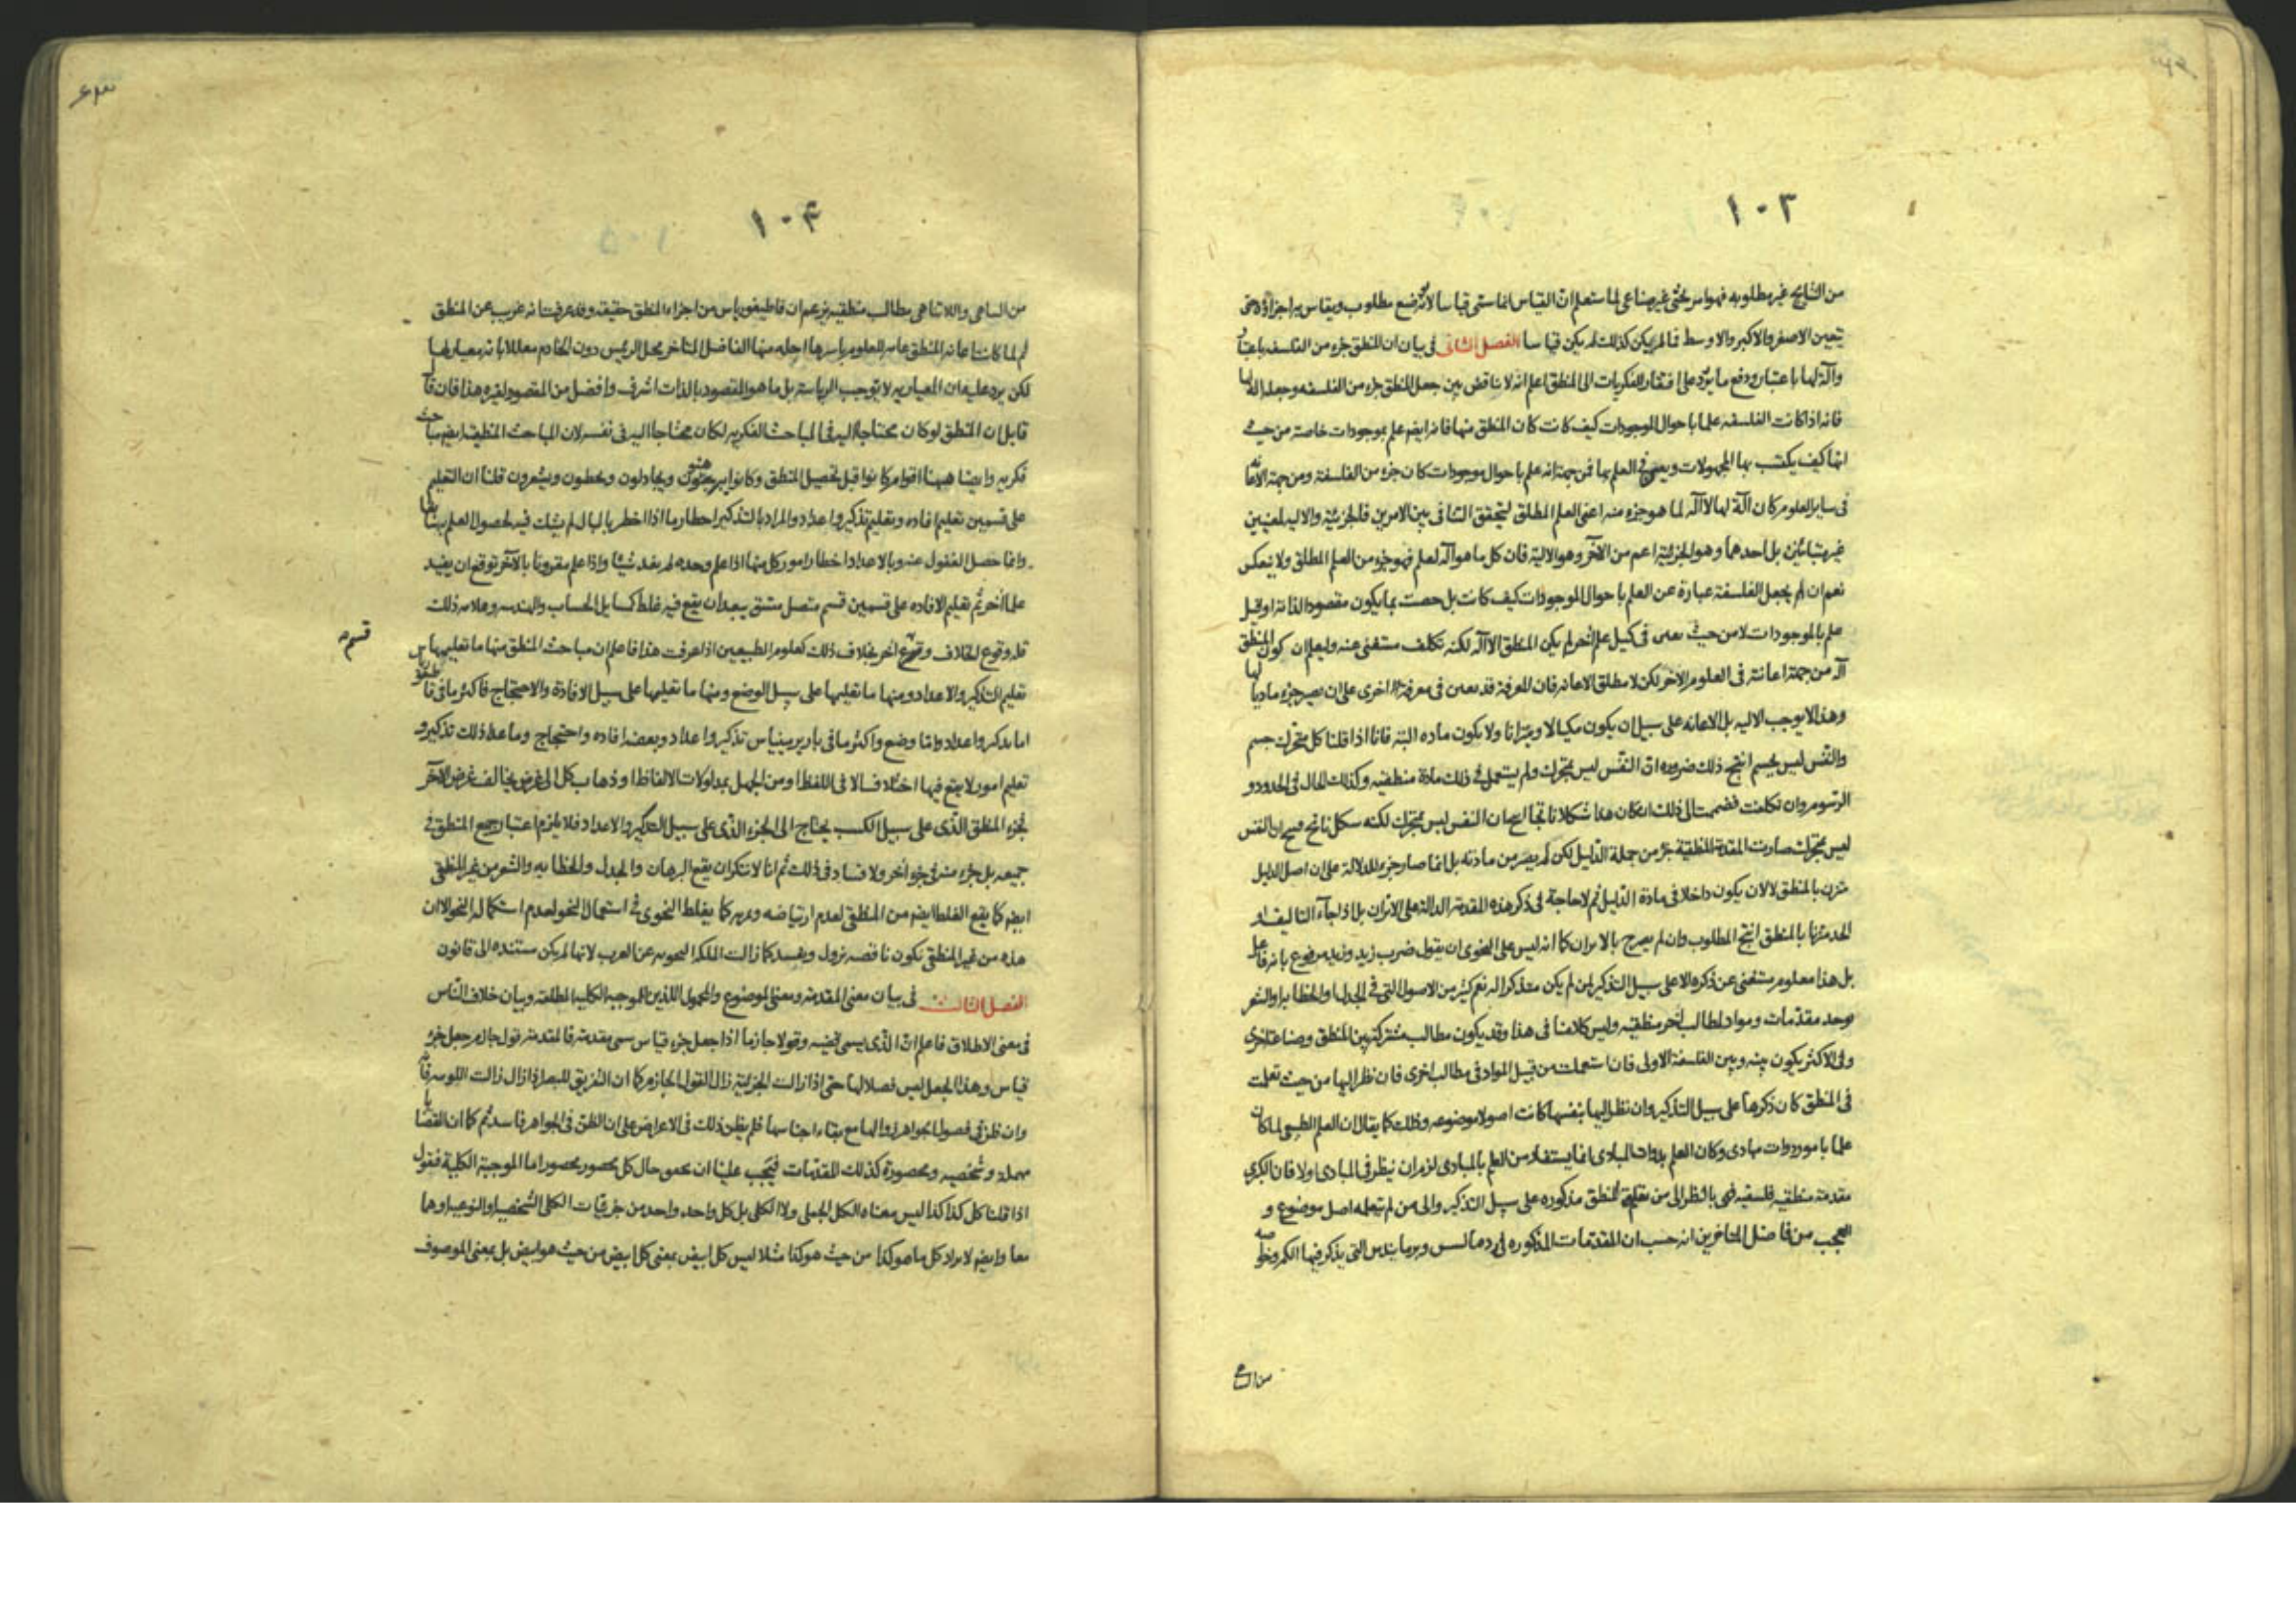 ١٠٣
من النتايج غير مطلوبه فهو امر بحثى غير صناعى لما ستعلم ان القياس انما سمى قياسا لانه وضع مطلوب ويقاس به اجزاؤه حتى
يتعين الاصغر والاكبر والاوسط فما لم يكن كذلك لم يكن قياسا الفصل الثانى فى بيان ان المنطق جزء من الفلسفه باعتبار
وآلة لها باعتبار ودفع ما يرد على افتقار الفكريات الى المنطق اعلم انه لا تناقض بين جعل المنطق جزء من الفلسفه وجعله آلة لها
فانه اذا كانت الفلسفه علما باحوال الموجودات كيف كانت كان المنطق منها فانه ايضا علم بموجودات خاصة من حيث
انها كيف يكتسب بها المجهولات ويعين فى العلم بها فمن جهة انه علم باحوال موجودات كان جزء من الفلسفة ومن جهة الاعانه
فى ساير العلوم كان آلة لها لا آلة لما هو جزء منه اعنى العلم المطلق ليتحقق التنافى بين الامرين فالجزئية والاليه لمعنيين
غير متباينين بل احدهما وهو الجزئية اعم من الآخر وهو الالية فان كل ما هو آلة لعلم فهو جزء من العلم المطلق ولا ينعكس
نعم ان لم يجعل الفلسفة عبارة عن العلم باحوال الموجودات كيف كانت بل خصت بما يكون مقصودا لذاته او قيل
علم بالموجودات لا من حيث يعين فى تحصيل علم آخر لم يكن المنطق الا آلة لكنه تكلف مستغنى عنه وليعلم ان كون المنطق
آلة من جهة اعانته فى العلوم الاخر لكن لا مطلق الاعانه فان المعرفة قد يعين فى معرفة اخرى على ان يصير جزء ماديا لها
وهذا لا يوجب الاليه بل الاعانه على سبيل ان يكون مكيالا وميزانا ولا يكون ماده البته فانا اذا قلنا كل متحرك جسم
والنفس ليس بجسم انتج ذلك ضروره ان النفس ليس بمتحرك ولم يستعمل فى ذلك مادة منطقيه وكذلك الحال فى الحدود و
الرسوم وان تكلفت فضممت الى ذلك ان كان هذا شكلا ناتجا صح ان النفس ليس بمتحرك لكنه شكل ناتج فصح ان النفس
ليس بمتحرك صارت المقدمة المنطقية جزء من جملة الدليل لكن لم يصر من مادته بل انما صار جزء للدلالة على ان اصل الدليل
متزن بالمنطق لا لان يكون داخلا فى مادة الدليل ثم لا حاجة فى ذكر هذه المقدمة الدالة على الاتزان بل اذا جاء التاليف او
الحد متزنا بالمنطق انتج المطلوب وان لم يصرح بالاتزان كما انه ليس على النحوى ان يقول ضرب زيد وزيد مرفوع بانه فاعل
بل هذا معلوم مستغنى عن ذكره الا على سبيل التذكير لمن لم يكن متذكرا له نعم كثير من الاصول التى فى الجدل والخطابه والشعر
يوجد مقدمات ومواد لمطالب اخر منطقيه وليس كلامنا فى هذا وقد يكون مطالب مشتركة بين المنطق وصناعة اخرى
وفى الاكثر يكون بينه وبين الفلسفة الاولى فان استعملت من قبيل المواد فى مطالب اخرى فان نظر اليها من حيث تعلمت
فى المنطق كان ذكرها على سبيل التذكير وان نظر اليها بنفسها كانت اصولا موضوعه وذلك كما يقال ان العلم الطبيعى لما كان
علما بامور ذوات مبادى وكان العلم بذوات المبادى انما يستفاد من العلم بالمبادى لزم ان ينظر فى المبادى اولا فان الكبرى
مقدمة منطقيه فلسفيه فهى بالنظر الى من تعلم المنطق مذكوره على سبيل التذكير والى من لم يتعلمه اصل موضوع و
العجب من فاضل المتاخرين انه حسب ان المقدمات المذكوره فى رد مالسس وبرمانيدس التى يذكر فيها الكم وخواصه
من التناهى
١٠٤
من التناهى واللاتناهى مطالب منطقيه بزعم ان قاطيغورياس من اجزاء المنطق حقيقه وقد عرفت انه غريب عن المنطق
ثم لما كانت اعانه المنطق عامه للعلوم باسرها احله منها الفاضل المتاخر محل الرئيس دون الخادم معللا بانه معيار لها
لكن يرد عليه ان المعياريه لا توجب الرياسة بل ما هو المقصود بالذات اشرف وافضل من المقصود لغيره هذا فان قال
قايل ان المنطق لو كان محتاجا اليه فى المباحث الفكريه لكان محتاجا اليه فى نفسه لان المباحث المنطقيه ايضا مباحث
فكريه وايضا ههنا اقوام كانوا قبل تحصيل المنطق وكانوا يبرهنون ويجادلون ويخطبون ويشعرون قلنا ان التعليم
على قسمين تعليم افاده وتعليم تذكير واعداد والمراد بالتذكير اخطار ما اذا اخطر بالبال لم يشك فيه لحصول العلم به سابقا
وانما حصل الغفول عنه وبالاعداد اخطار امور كل منها اذا علم وحده لم يفد شيئا واذا علم مقرونا بالآخر توقع ان يفيد
علما آخر ثم تعليم الافاده على قسمين قسم متصل متسق يبعد ان يقع فيه غلط كمسايل الحساب والهندسه وعلامه ذلك
قله وقوع الخلاف وقسم آخر بخلاف ذلك كعلوم الطبيعيين اذا عرفت هذا فاعلم ان مباحث المنطق منها ما تعليمها
قسم صح
تعليم التذكير والاعداد ومنها ما تعليمها على سبيل الوضع ومنها ما تعليمها على سبيل الافادة والاحتجاج فاكثر ما فى قاطيغورياس
اما تذكير واعداد واما وضع واكثر ما فى باريرمينياس تذكير واعداد وبعضه افاده واحتجاج وما عدا ذلك تذكير و
تعليم امور لا يقع فيها اختلاف الا فى اللفظ او من الجهل بمدلولات الالفاظ او ذهاب كل الى غرض يخالف غرض الآخر
فجزء المنطق الذى على سبيل الكسب يحتاج الى الجزء الذى على سبيل التذكير والاعداد فلا يلزم اعتبار جميع المنطق فى
جميعه بل جزء منه فى جزء آخر ولا فساد فى ذلك ثم انا لا ننكر ان يقع البرهان والجدل والخطابه والشعر من غير المنطقى
ايضا كما يقع الغلط ايضا من المنطقى لعدم ارتياضه وغيره كما يغلط النحوى فى استعمال النحو لعدم استكماله النحو الا ان
هذه من غير المنطقى تكون ناقصه تزول ويفسد كما زالت الملكه النحويه عن العرب لانها لم يكن مستنده الى قانون
الفصل الثالث فى بيان معنى المقدمة ومعنى الموضوع والمحمول اللذين للموجبه الكليه المطلقه وبيان خلاف الناس
فى معنى الاطلاق فاعلم ان الذى يسمى قضيه وقولا جازما اذا جعل جزء قياس سمى مقدمة فالمقدمة قول جازم جعل جزء
قياس وهذا الجعل ليس فصلا لها حتى اذا زالت الجزئية زال القول الجازم كما ان التفريق للبصر اذا زال زالت اللونيه فانه
وان ظن فى فصول الجواهر زوالها مع بقاء اجناسها فلم يظن ذلك فى الاعراض على ان الظن فى الجواهر فاسد ثم كما ان القضايا
مهمله وشخصيه ومحصورة كذلك المقدمات فيجب علينا ان نحقق حال كل محصور محصور اما الموجبة الكلية فنقول
اذا قلنا كل كذا كذا ليس معناه الكل الجملى ولا الكلى بل كل واحد واحد من جزئيات الكلى الشخصية او النوعيه او هما
معا وايضا لا يراد كل ما هو كذا من حيث هو كذا مثلا ليس كل ابيض بمعنى كل ابيض من حيث هو ابيض بل بمعنى الموصوف